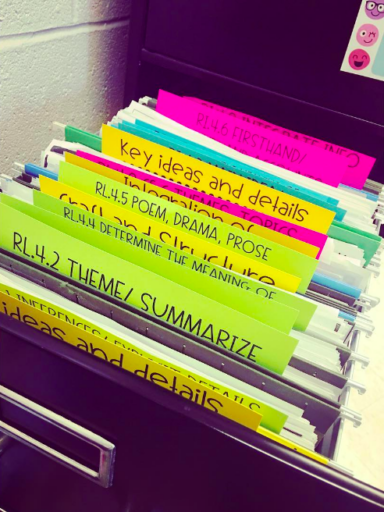 RL.4.6 FIRSTHAND/
Key ideas and details
Integration of
TOPICS
RL.4.5 POEM, DRAMA, PROSE
Craft and Structure
RL.4.4 DETERMINE THE MEANING OF
RL.4.2 THEME/ SUMMARIZE
INFERENCES/ EXPLICIT DETAILS
ideas and details